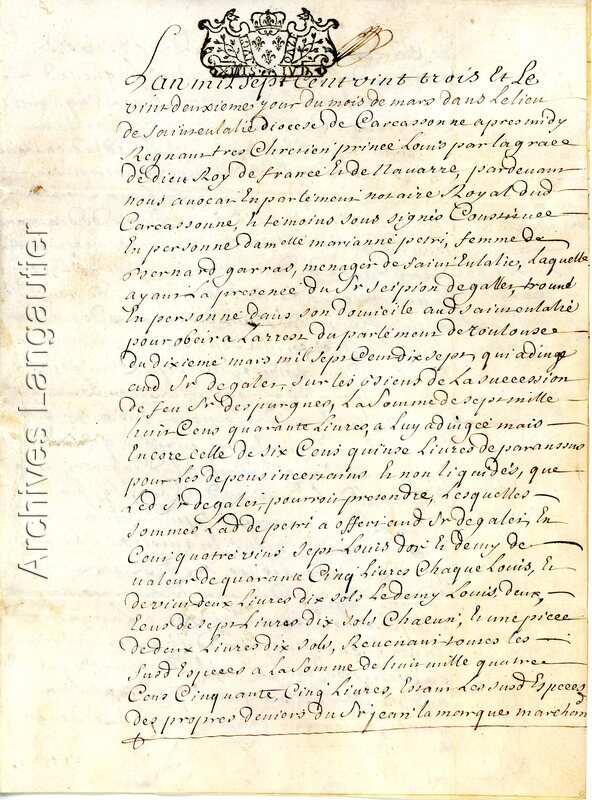 Archives Langautier
Lan mil sept cent vint trois et le
vint deuxieme jour du mois de mars dans le lieu
de sainteulalie diocese de Carcassonne apres midy
Regnant tres Chretien prince Louis par la grace
de dieu Roy de france et de Navarre, pardevant
nous avocat en parlement notaire Royal dud
Carcassonne, et temoins sous signés Constituée
En personne damelle marianne petri, femme de
Bernard garras, menager de Saint Eulalie, Laquelle
ayant La presence du Sr Scipion de galet, trouvé
En personne dans son domicile aud sainteulalie
pour obeir a Larrest du parlement de toulouse
du dixieme mars mil sept Cent dix sept, qui adiuge
aud Sr de galet, sur les biens de La succession
de feu Sr despurgues, La Somme de sept mille
huit Cens quarante Livres, a Luy adiugée mais
Encore celle de six Cens quinse Livres
pour Les depens incertains et non liquidés, que
Led Sr de galet, pourroit pretendre, Lesquelles
sommes Lad de petri a offert aud Sr de galet, En
Cent quatre vints sept Louis dor et demy de
valeur de quarante Cinq Livres Chaque Louis, Et
de vint deux Livres dix sols Le demy Louis, deux
Ecus de sept Livres dix sols Chacun, et une piece
de deux Livres dix sols, Revenant toutes les
Susd Especes a la Somme de huit mille quatre
Cens Cinquante, Cinq Livres, Estant Les susd Especes
des propres deniers du Sr jean lamorque marchan